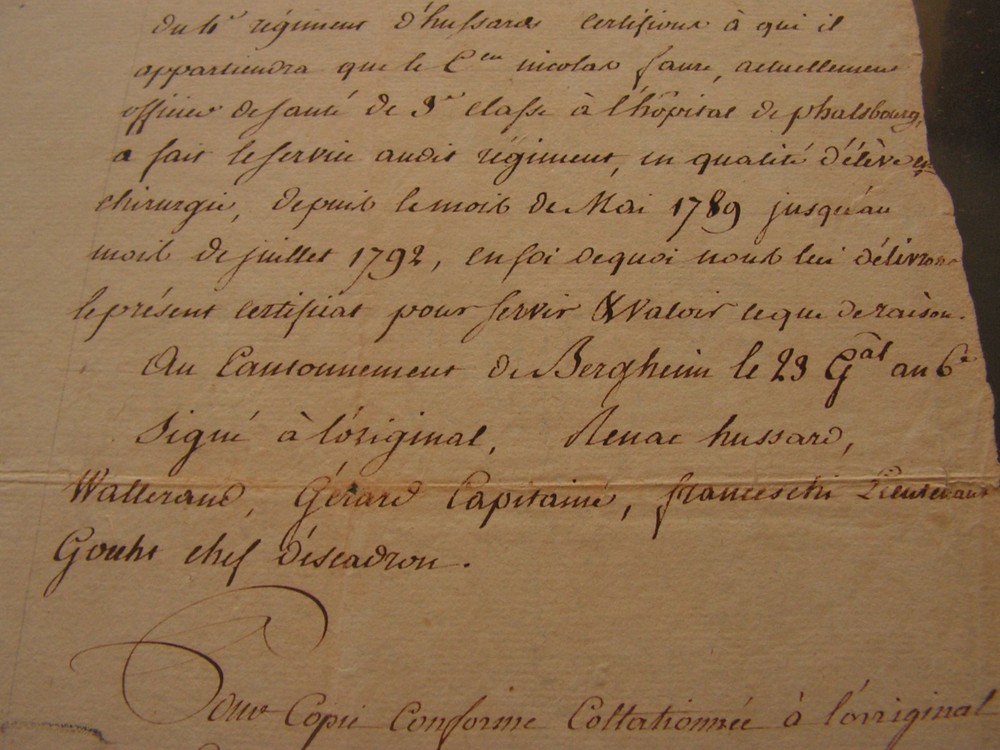 régiment d'hussards certifions à qui il
appartiendra que le C.en nicolas faure, actuellement
officier de santé de 3e classe à l'hôpital de phalsbourg,
a fait le service audit régiment, en qualité d'élève en
chirurgie, depuis le mois de Mai 1789 jusqu'au
mois de juillet 1792, en foi de quoi nous lui délivrons
le présent certificat pour servir & valoir ce que de raison.
Au Cantonnement de Bergheim le 23 G.al an 6e
Signé à l'original, Renac hussard,
Wallerand, Gérard Capitaine, franceschi Lieutenant
chef d'éscadron.
Pour Copie Conforme Collationnée à l'original